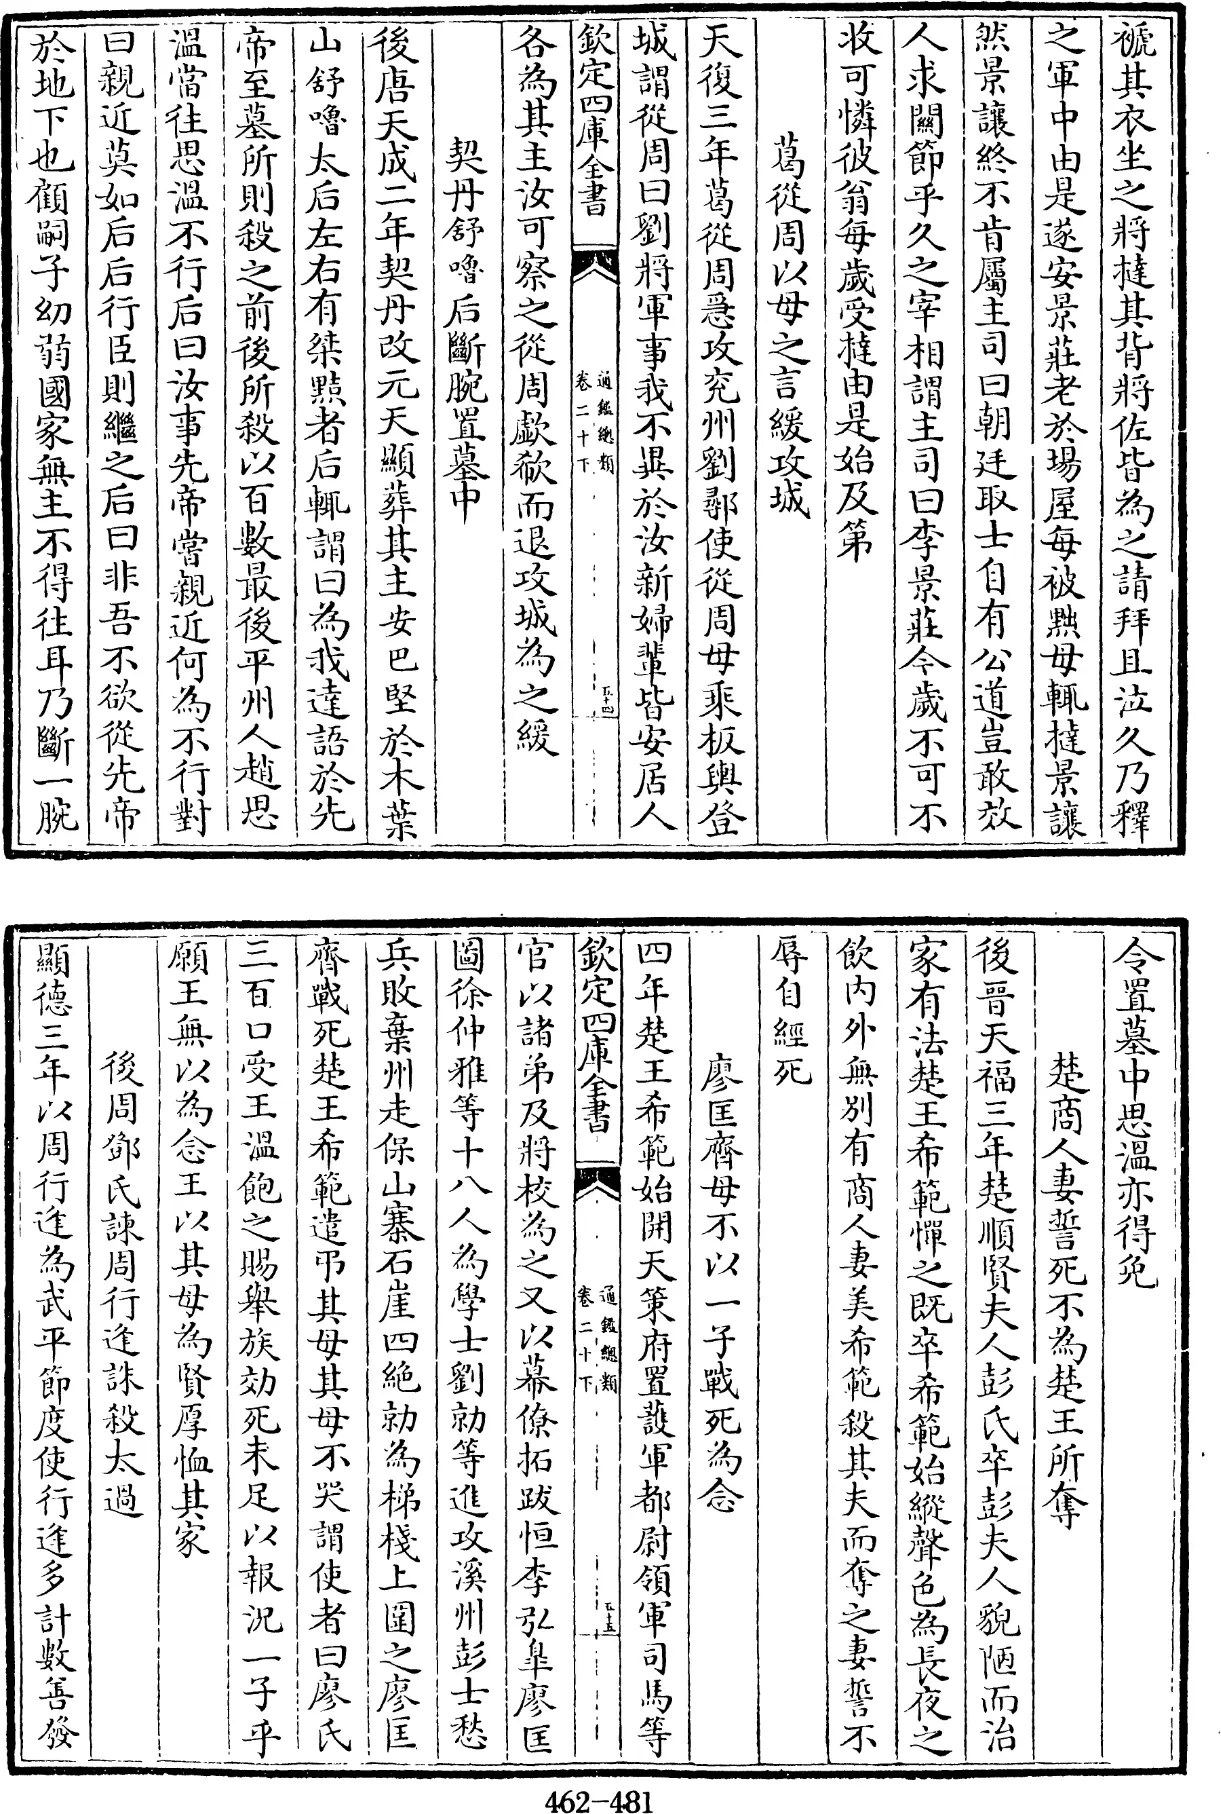 褫其衣坐之將撻其背將佐皆為之請拜且泣久乃釋
之軍中由是遂安景莊老於場屋每被黜母輒撻景讓
然景讓終不肯屬主司曰朝廷取士自有公道豈敢效
人求關節乎久之宰相謂主司曰李景莊今歲不可不
收可憐彼翁每歲受撻由是始及第
葛從周以母之言緩攻城
天復三年葛從周急攻兖州劉鄩使從周母乘板輿登
城謂從周曰劉將軍事我不異於汝新婦輩皆安居人
欽定四庫全書
通鑑總類
卷二十下
五十四
各為其主汝可察之從周歔欷而退攻城為之緩
契丹舒嚕后斷腕置墓中
後唐天成二年契丹改元天顯葬其主安巴堅於木葉
山舒嚕太后左右有桀黠者后輒謂曰為我達語於先
帝至墓所則殺之前後所殺以百數最後平州人趙思
溫當往思溫不行后曰汝事先帝嘗親近何為不行對
曰親近莫如后后行臣則繼之后曰非吾不欲從先帝
於地下也顧嗣子幼弱國家無主不得往耳乃斷一腕
令置墓中思溫亦得免
楚商人妻誓死不為楚王所奪
後晉天福三年楚順賢夫人彭氏卒彭夫人貌陋而治
家有法楚王希範憚之既卒希範始縱聲色為長夜之
飲內外無別有商人妻美希範殺其夫而奪之妻誓不
辱自經死
廖匡齊母不以一子戰死為念
四年楚王希範始開天策府置護軍都尉領軍司馬等
欽定四庫全書
通鑑總類
卷二十下
五十五
官以諸弟及將校為之又以幕僚拓跋恒李弘臯廖匡
圖徐仲雅等十八人為學士劉勍等進攻溪州彭士愁
兵敗棄州走保山寨石崖四絶勍為梯棧上圍之廖匡
齊戰死楚王希範遣弔其母其母不哭謂使者曰廖氏
三百口受王溫飽之賜舉族効死未足以報況一子乎
願王無以為念王以其母為賢厚恤其家
後周鄧氏諫周行逢誅殺太過
顯德三年以周行逢為武平節度使行逢多計數善發
462-481